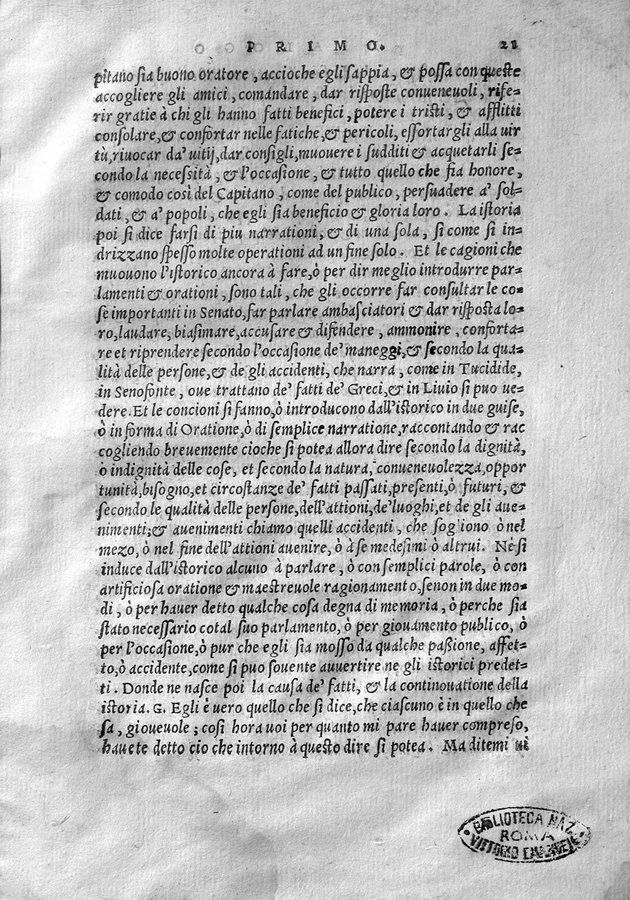 PRIMO. 21
pitano sia buono oratore, accioche egli sappia, & possa con queste
accogliere gli amici, comandare, dar risposte conueneuoli, rife-
rir gratie à chi gli hanno fatti benefici, potere i tristi, & afflitti
consolare, & confortar nelle fatiche, & pericoli, essortargli alla uir
tù, riuocar da' uitij, dar consigli, muouere i sudditi & acquetarli se-
condo la necessità, & l'occasione, & tutto quello che fia honore,
& comodo così del Capitano, come del publico, persuadere a' sol-
dati, & a' popoli, che egli sia beneficio & gloria loro. La istoria
poi si dice farsi di piu narrationi, & di una sola, si come si in-
drizzano spesso molte operationi ad un fine solo. Et le cagioni che
muouono l'istorico ancora à fare, ò per dir meglio introdurre par-
lamenti & orationi, sono tali, che gli occorre far consultar le co-
se importanti in Senato, far parlare ambasciatori & dar risposta lo-
ro, laudare, biasimare, accusare & difendere, ammonire, conforta-
re et riprendere secondo l'occasione de' maneggi, & secondo la qua-
lità delle persone, & de gli accidenti, che narra, come in Tucidide,
in Senofonte, oue trattano de' fatti de' Greci, & in Liuio si puo ue-
dere. Et le concioni si fanno, ò introducono dall'istorico in due guise,
ò in forma di Oratione, ò di semplice narratione, raccontando & rac
cogliendo breuemente cioche si potea allora dire secondo la dignità,
ò indignità delle cose, et secondo la natura, conueneuolezza, oppor
tunità, bisogno, et circostanze de' fatti passati, presenti, ò futuri, &
secondo le qualità delle persone, dell'attioni, de' luoghi, et de gli aue-
nimenti; & auenimenti chiamo quelli accidenti, che sogliono ò nel
mezo, ò nel fine dell'attioni auenire, ò à se medesimi ò altrui. Nè si
induce dall'istorico alcuno à parlare, ò con semplici parole, ò con
artificiosa oratione & maestreuole ragionamento, se non in due mo-
di, ò per hauer detto qualche cosa degna di memoria, ò perche sia
stato necessario cotal suo parlamento, ò per giouamento publico, ò
per l'occasione, ò pur che egli sia mosso da qualche passione, affet-
to, ò accidente, come si puo souente auuertire ne gli istorici predet-
ti. Donde ne nasce poi la causa de' fatti, & la continouatione della
istoria. G. Egli è uero quello che si dice, che ciascuno è in quello che
sa, gioueuole; così hora uoi per quanto mi pare hauer compreso,
hauete detto cio che intorno à questo dire si potea. Ma ditemi ui
BIBLIOTECA NAZ.
ROMA
VITTORIO EMANUELE